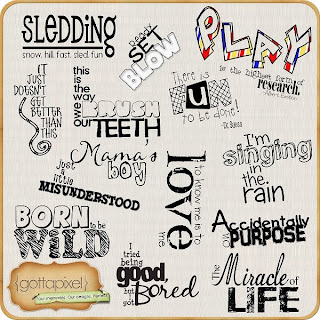 Sledding
snow. hill. fast. sled. fun
Ready
SET
BLOW
PLAY
is the highest form of
research.
IT
JUST
DOESN'T
GET
BETTER
THAN
THIS
this
is the
way
we
BRUSH
our
TEETH
There is
FUN
to be done!
Dr. Seuss
Mama's
boy
just
a
little
MISUNDERSTOOD
to know me is to
love me
I'm
singing
in
the
rain
BORN to be
WILD
Accidentally
on
PURPOSE
I
tried
being
good,
but
I
got
Bored
The
Miracle of
LIFE
{gottapixel}